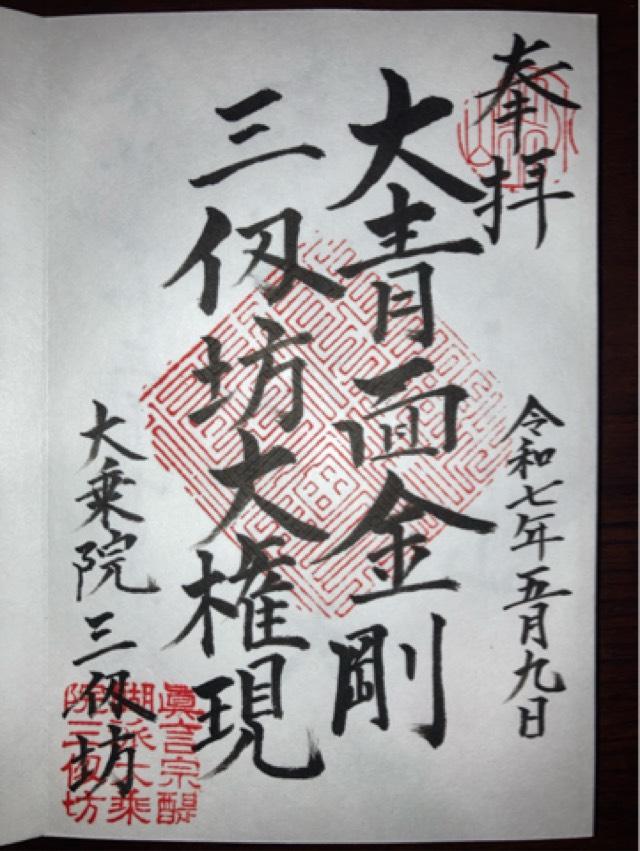 奉拝
令和七年五月九日
大青面金剛
三仭坊大権現
大乗院三仭坊
眞言宗醍
醐派大乘
院三仭坊